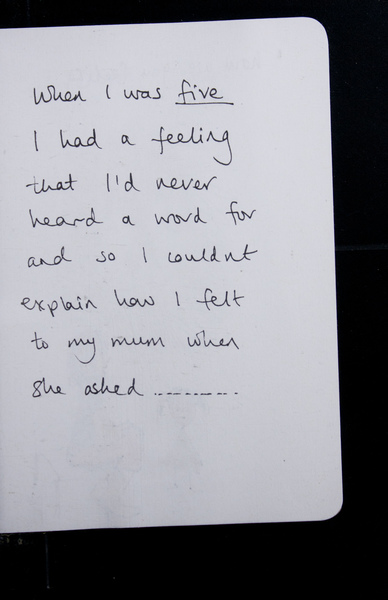 When I was five
I had a feeling
that I'd never
heard a word for
and so I couldnt
explain how I felt
to my mum when
she asked ..........